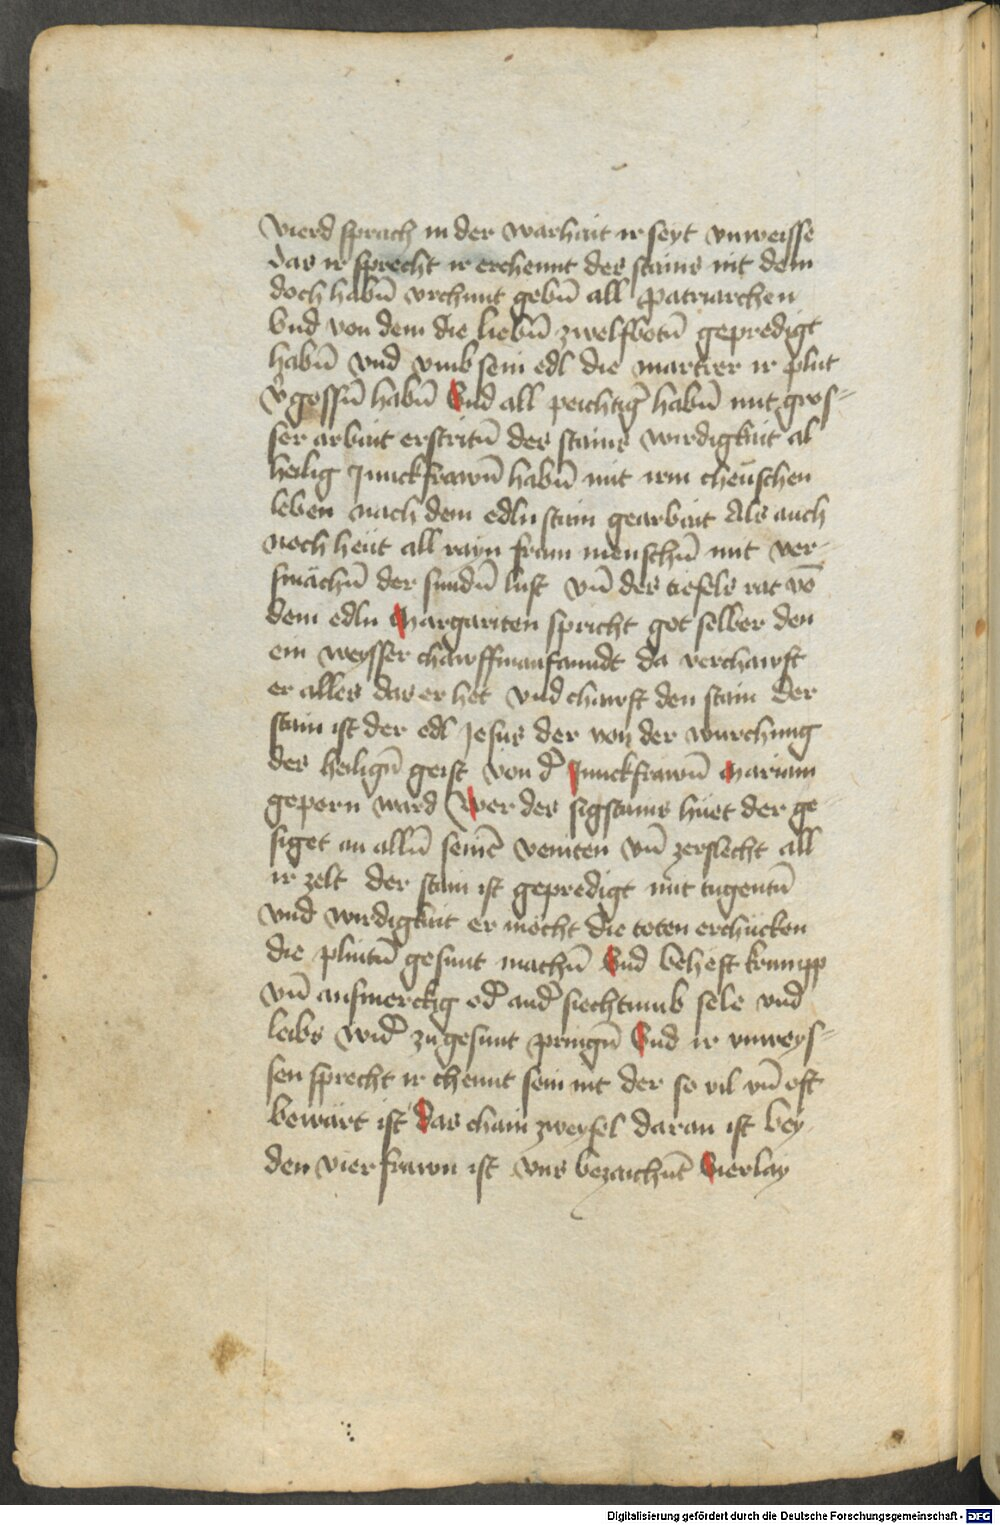 vierd sprach in der warhait ir seyt vnweisse
das ir sprecht ir erchennt des stains nit dem
doch habn̄ vrchunt gebn̄ all patriarchen
Vnd von dem die liebn̄ zwelfbotn̄ gepredigt
habn̄ vnd vmb sein edl die martrer ir plut
v̾gossn̄ habn̄ Vnd all peichtig̾ habn̄ mit gros-
ser arbait erstritn̄ des stains wirdigkait al
heilig Junckfrawn̄ habn̄ mit irm cheüschen
leben nach dem edln stain gearbait Als auch
noch heüt all rayn frum menschn̄ mit ver-
smächn̄ der sundn̄ lust vn̄ des tiefels rat vō
dem edln Margariten spricht got selber den
ein weysser chawffman fanndt da verchawft
er alles das er het vnd chawft den stain Der
stain ist der edl Jesus der von der wurchung
des heilign̄ geist von d̾ Junckfrawn̄ Mariam
geporn ward Wer des sigstains hüet der ge-
siget an alln̄ sein̄ veinten vn̄ zerslecht all
ir zelt der stain ist gepredigt mit tugentn̄
vnd wirdigkait er möcht die toten erchücken
die plintn̄ gesunt machn̄ Vnd beheft krumpp
vn̄ aufmerckig od̾ and̾ siechtumb sele vnd
leibs wid̾ zu gesunt pringn̄ Vnd ir vnweys-
sen sprecht ir chennt sein nit der so vil vn̄ oft
bewärt ist Das chain zweyfel daran ist bey
den vier frawn ist vns bezaichn̄t Vierlay
Digitalisierung gefördert durch die Deutsche Forschungsgemeinschaft - DFG